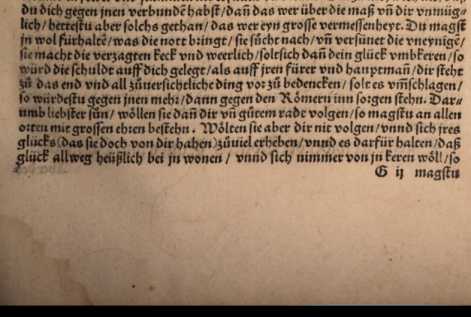 du dich gegen jnen verbundẽ habst / dañ das wer über die maß vñ dir vnmüg⸗
lich / hettestu aber solchs gethan / das wer eyn grosse vermessenheyt. Du magst
in wol fürhaltẽ / was die nott bringt / sie sücht nach / vñ versünet die vneynigẽ /
sie macht die verzagten keck vnd weerlich / soltsich dañ dein glück vmbkeren / so
würd die schuldt auff dich gelegt / als auff jren fürer vnd hauptmañ / dir steht
zů das end vnd all zůuersichtliche ding vor zů bedencken / solt es vm̃schlagen /
so würdestu gegen jnen mehr / dann gegen den Römern inn sorgen stehn. Dar⸗
umb liebster sün / wöllen sie dañ dir vñ gůtem rade volgen / so magstu an allen
orten mit grossen ehren bestehn . Wölten sie aber dir nit volgen / vnnd sich jres
glücks (das sie doch von dir haben) zůuiel erheben / vnnd es darfür halten / daß
glück allweg heüßlich bei jn wonen / vnnd sich nimmer von jn keren wöll / so
G ij magstu